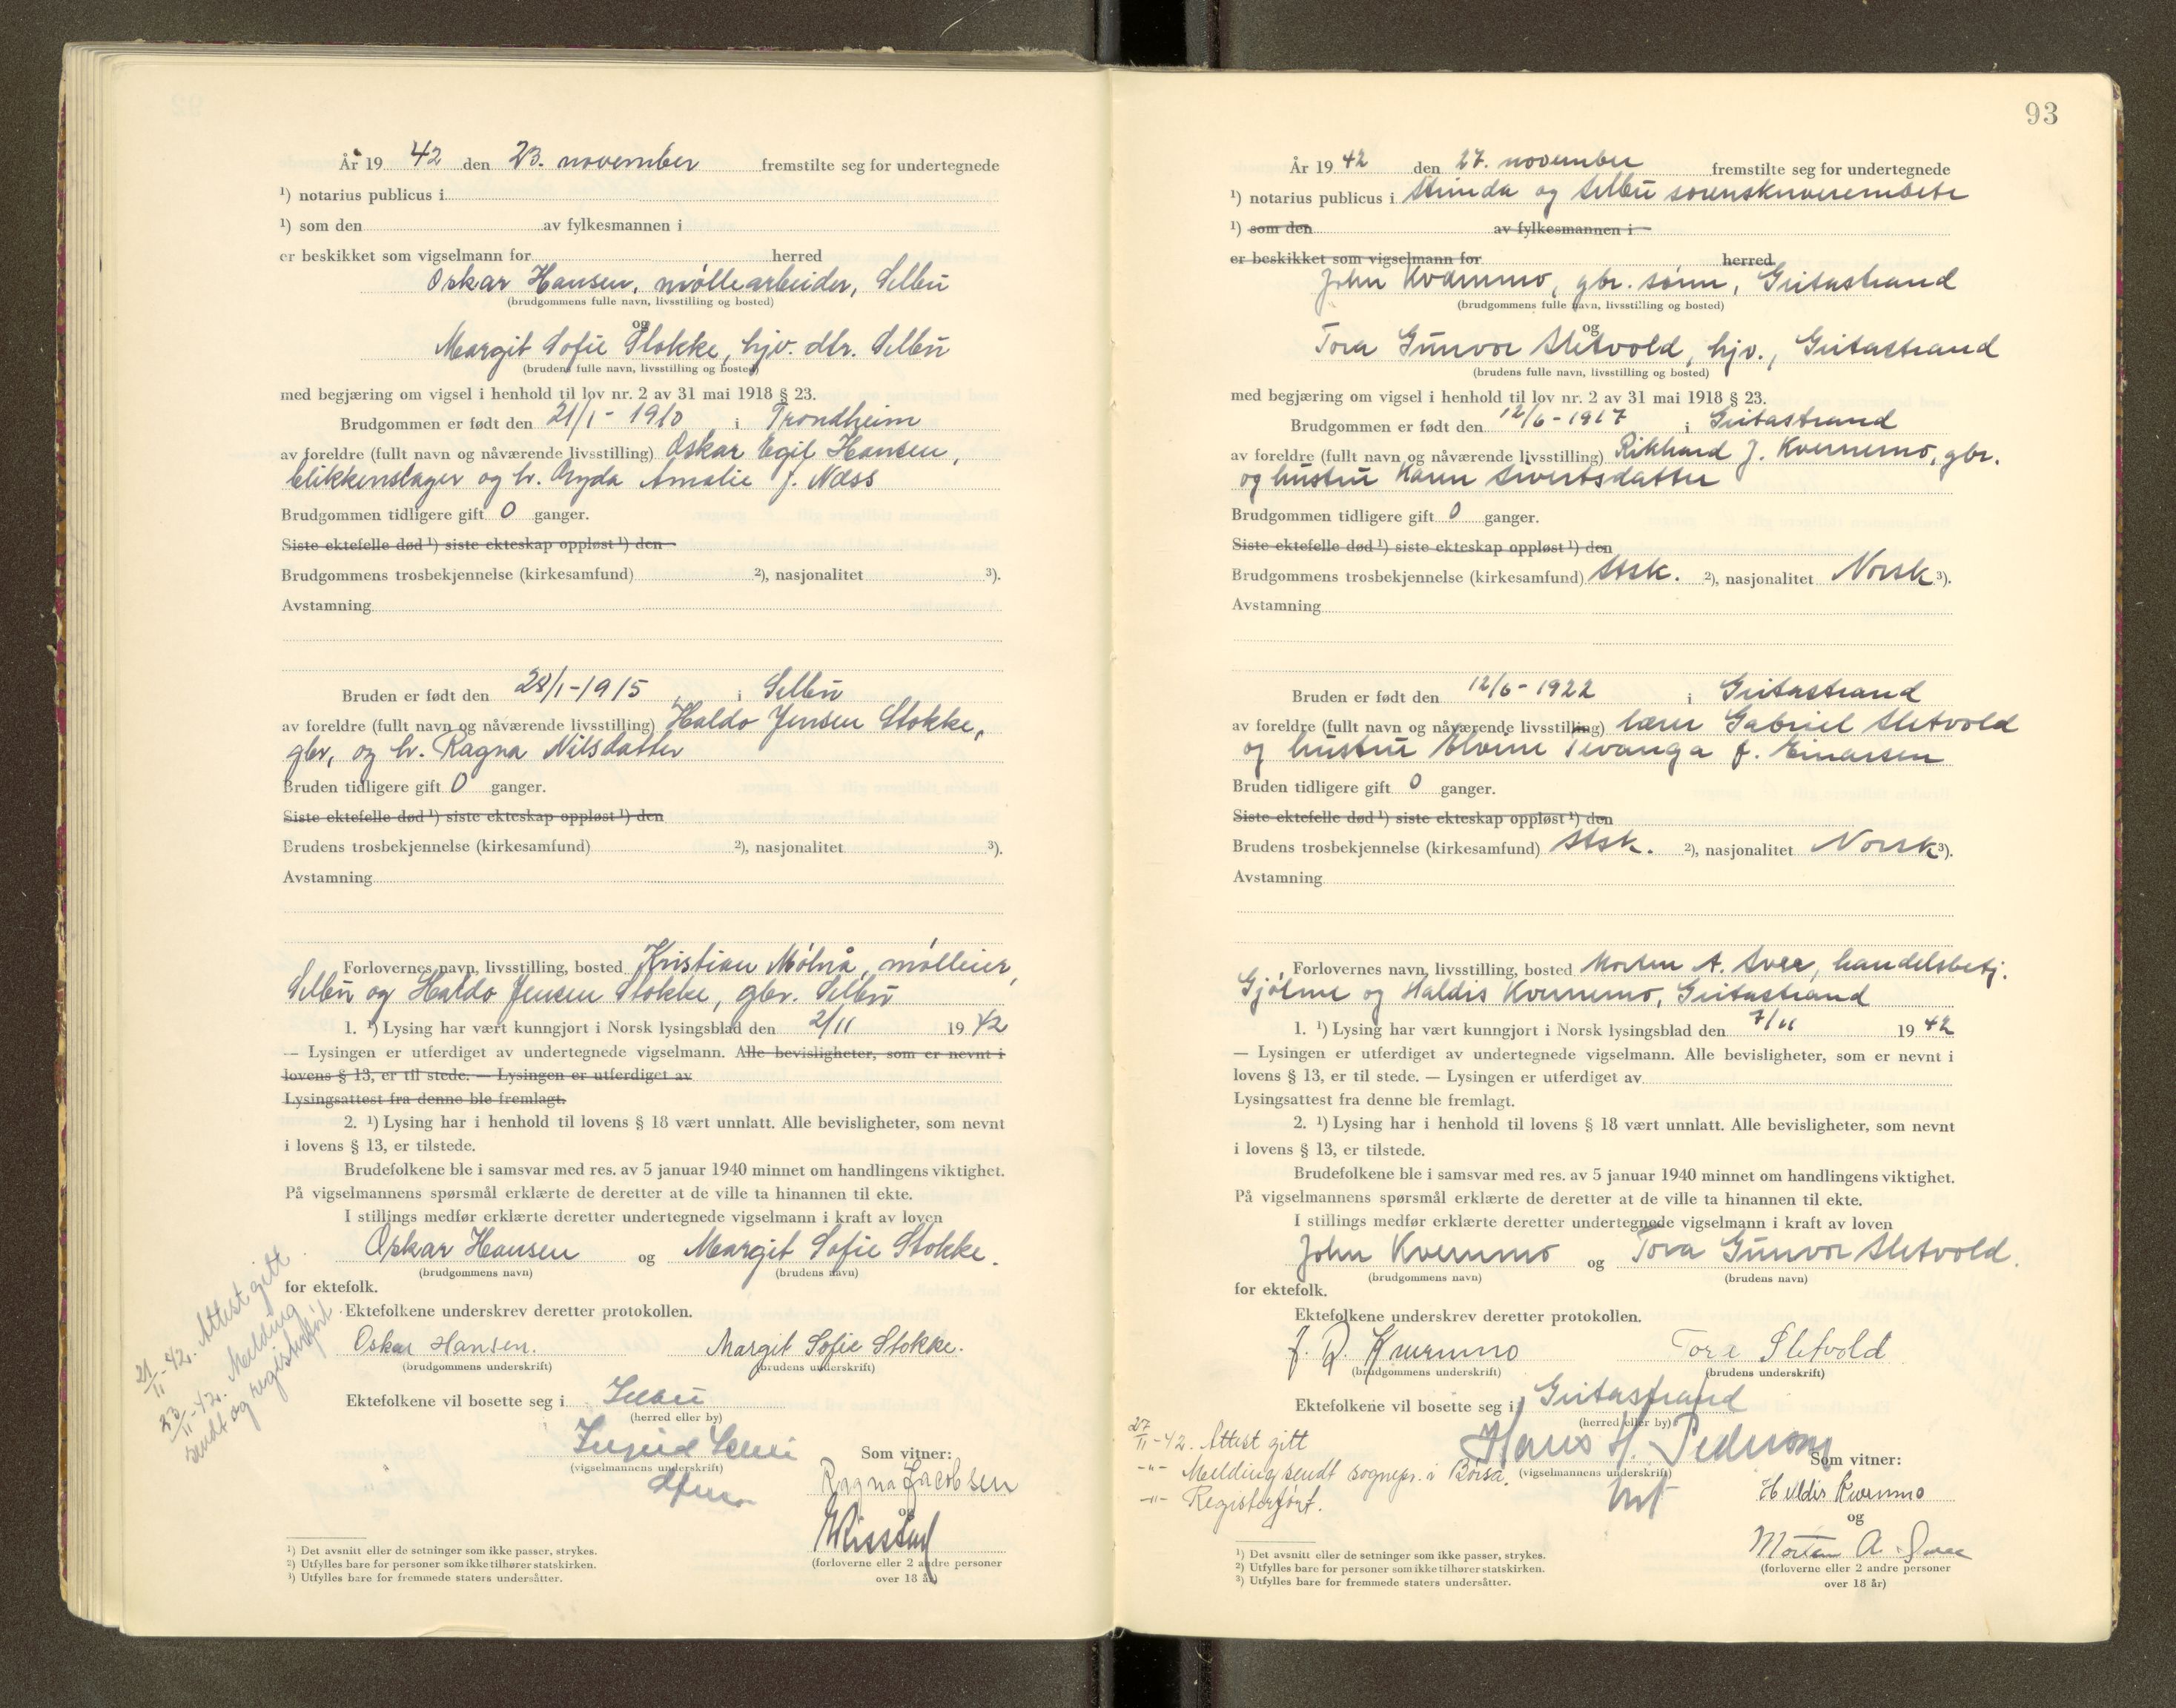 År 19 42 den 23. november fremstilte seg for undertegnede
¹) notarius publicus i
¹) som den av fylkesmannen i
er beskikket som vigselmann for herred
Oskar Hansen, møllearbeider, Selbu
(brudgommens fulle navn, livsstilling og bosted)
og
Margit Sofie Stokke, hjv. dtr. Selbu
(brudens fulle navn, livsstilling og bosted)
med begjæring om vigsel i henhold til lov nr. 2 av 31 mai 1918 § 23.
Brudgommen er født den 21/1 - 1910 i Trondheim
av foreldre (fullt navn og nåværende livsstilling) Oskar Egil Hansen,
blikkenslager og h. Amalie f. Næss
Brudgommen tidligere gift 0 ganger.
Siste ektefelle død ¹) siste ekteskap oppløst ¹) den
Brudgommens trosbekjennelse (kirkesamfund) ²), nasjonalitet ³).
Avstamning
Bruden er født den 28/1-1915 i Selbu
av foreldre (fullt navn og nåværende livsstilling) Haldo Jensen Stokke,
gbr, og h. Ragna Nilsdatter
Bruden tidligere gift 0 ganger.
Siste ektefelle død ¹) siste ekteskap oppløst ¹) den
Brudens trosbekjennelse (kirkesamfund) ²), nasjonalitet ³).
Avstamning
Forlovernes navn, livsstilling, bosted Kristian Mølnå, mølleier,
Selbu og Haldo Jensen Stokke, gbr. Selbu
1. ¹) Lysing har vært kunngjort i Norsk lysingsblad den 2/11 19 42
— Lysingen er utferdiget av undertegnede vigselmann. Alle bevisligheter, som er nevnt i
lovens § 13, er til stede. — Lysingen er utferdiget av
Lysingsattest fra denne ble fremlagt.
2. ¹) Lysing har i henhold til lovens § 18 vært unnlatt. Alle bevisligheter, som nevnt
i lovens § 13, er tilstede.
Brudefolkene ble i samsvar med res. av 5 januar 1940 minnet om handlingens viktighet.
På vigselmannens spørsmål erklærte de deretter at de ville ta hinannen til ekte.
I stillings medfør erklærte deretter undertegnede vigselmann i kraft av loven
Oskar Hansen og Margit Sofie Stokke.
(brudgommens navn) (brudens navn)
for ektefolk.
Ektefolkene underskrev deretter protokollen.
Oskar Hansen. Margit Sofie Stokke.
(brudgommens underskrift) (brudens underskrift)
Ektefolkene vil bosette seg i Selbu
(herred eller by)
(vigselmannens underskrift)
Som vitner:
Ragna Jacobsen
og
(forloverne eller 2 andre personer
over 18 år)
21/11-42. Attest gitt
23/11-42. Melding
sendt og registerført
¹) Det avsnitt eller de setninger som ikke passer, strykes.
²) Utfylles bare for personer som ikke tilhører statskirken.
³) Utfylles bare for fremmede staters undersåtter.
93
År 19 42 den 27. november fremstilte seg for undertegnede
¹) notarius publicus i Strinda og Selbu sorenskriverembete
¹) som den av fylkesmannen i
er beskikket som vigselmann for herred
John Kvernmo, gbr. sønn, Geitastrand
(brudgommens fulle navn, livsstilling og bosted)
og
Tora Gunvor Sletvold, hjv., Geitastrand
(brudens fulle navn, livsstilling og bosted)
med begjæring om vigsel i henhold til lov nr. 2 av 31 mai 1918 § 23.
Brudgommen er født den 12/6-1917 i Geitastrand
av foreldre (fullt navn og nåværende livsstilling) Rikhard J. Kvernmo, gbr.
og hustru Karen Sivertsdatter
Brudgommen tidligere gift 0 ganger.
Siste ektefelle død ¹) siste ekteskap oppløst ¹) den
Brudgommens trosbekjennelse (kirkesamfund) Stsk. ²), nasjonalitet Norsk ³).
Avstamning
Bruden er født den 12/6-1922 i Geitastrand
av foreldre (fullt navn og nåværende livsstilling) lærer Gabriel Sletvold
og hustru f. Einarsen
Bruden tidligere gift 0 ganger.
Siste ektefelle død ¹) siste ekteskap oppløst ¹) den
Brudens trosbekjennelse (kirkesamfund) Stsk. ²), nasjonalitet Norsk ³).
Avstamning
Forlovernes navn, livsstilling, bosted Morten A. Svee, handelsbetj.
Gjølme og Haldis Kvernmo, Geitastrand
1. ¹) Lysing har vært kunngjort i Norsk lysingsblad den 7/11 19 42
— Lysingen er utferdiget av undertegnede vigselmann. Alle bevisligheter, som er nevnt i
lovens § 13, er til stede. — Lysingen er utferdiget av
Lysingsattest fra denne ble fremlagt.
2. ¹) Lysing har i henhold til lovens § 18 vært unnlatt. Alle bevisligheter, som nevnt
i lovens § 13, er tilstede.
Brudefolkene ble i samsvar med res. av 5 januar 1940 minnet om handlingens viktighet.
På vigselmannens spørsmål erklærte de deretter at de ville ta hinannen til ekte.
I stillings medfør erklærte deretter undertegnede vigselmann i kraft av loven
John Kvernmo og Tora Gunvor Sletvold.
(brudgommens navn) (brudens navn)
for ektefolk.
Ektefolkene underskrev deretter protokollen.
J. R. Kvernmo Tora Sletvold
(brudgommens underskrift) (brudens underskrift)
Ektefolkene vil bosette seg i Geitastrand
(herred eller by)
Hans H. Pedersen
(vigselmannens underskrift)
Som vitner:
Haldis Kvernmo
og
Morten A. Svee
(forloverne eller 2 andre personer
over 18 år)
27/11-42. Attest gitt
-"- Melding sendt sognepr. i Børsa.
-"- Registerført.
¹) Det avsnitt eller de setninger som ikke passer, strykes.
²) Utfylles bare for personer som ikke tilhører statskirken.
³) Utfylles bare for fremmede staters undersåtter.